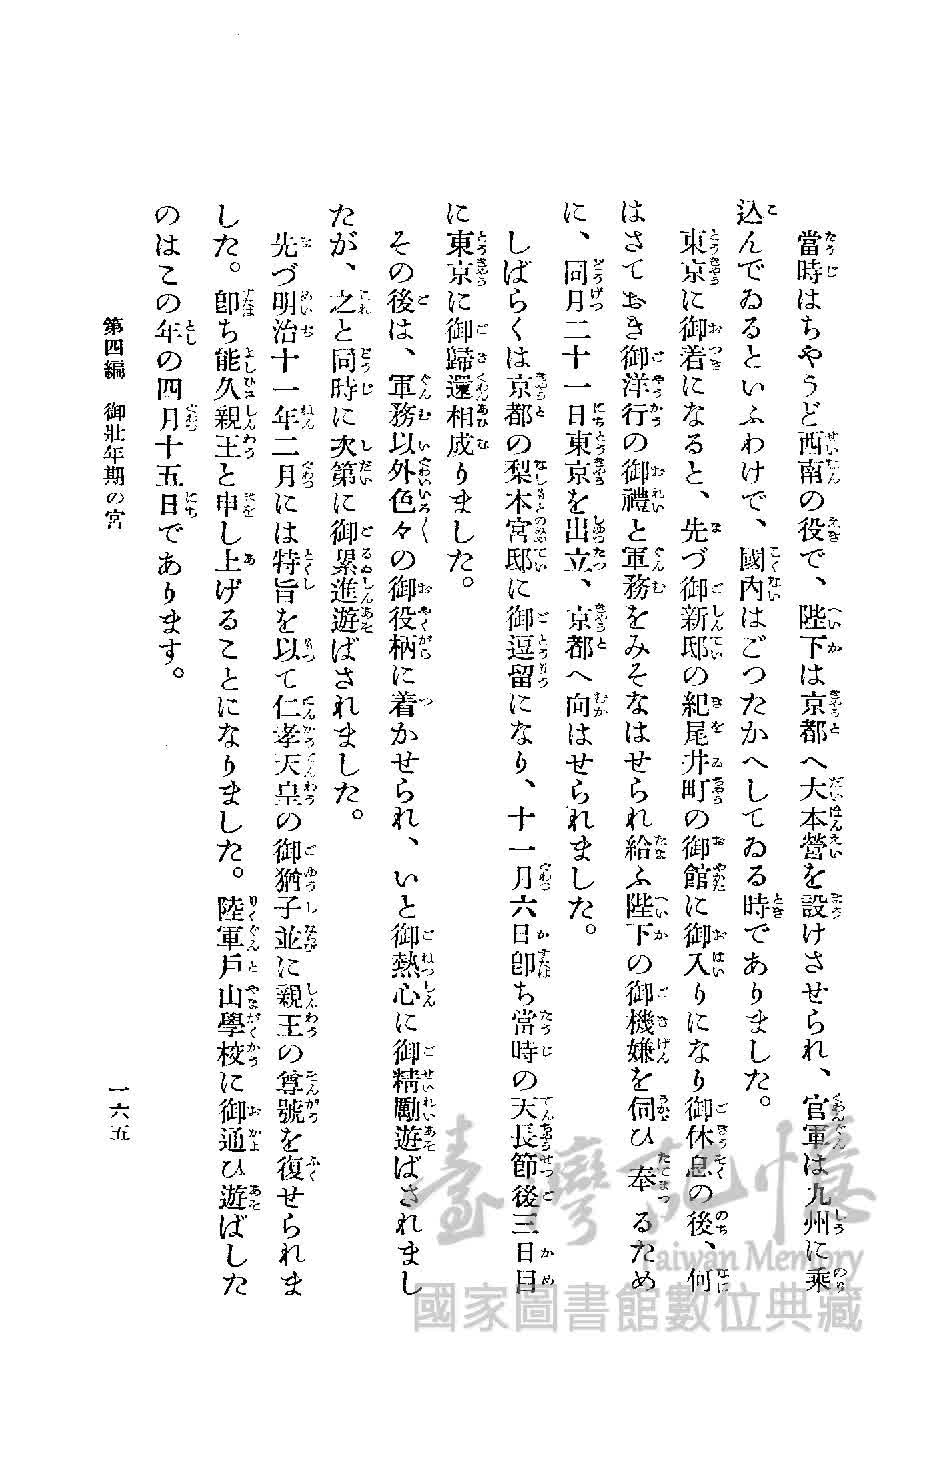 當時はちやうど西南の役で、陛下は京都へ大本營を設けさせられ、官軍は九州に乘
込んでゐるといふわけで、國內はごつたかへしてゐる時でありました。
東京に御着になると、先づ御新邸の紀尾井町の御館に御入りになり御休息の後、何
はさておき御洋行の御禮と軍務をみそなはせられ給ふ陛下の御機嫌を伺ひ奉るため
に、同月二十一日東京を出立、京都へ向はせられました。
しばらくは京都の梨本宮邸に御逗留になり、十一月六日卽ち當時の天長節後三日目
に東京に御歸還相成りました。
その後は、軍務以外色々の御役柄に着かせられ、いと御熱心に御精勵遊ばされまし
たが、之と同時に次第に御累進遊ばされました。
先づ明治十一年二月には特旨を以て仁孝天皇の御猶子並に親王の尊號を復せられま
した。卽ち能久親王と申し上げることになりました。陸軍戶山學校に御通ひ遊ばした
のはこの年の四月十五日であります。
第四編　御壯年期の宮
一六五
臺灣記憶
Taiwan Memory
國家圖書館數位典藏